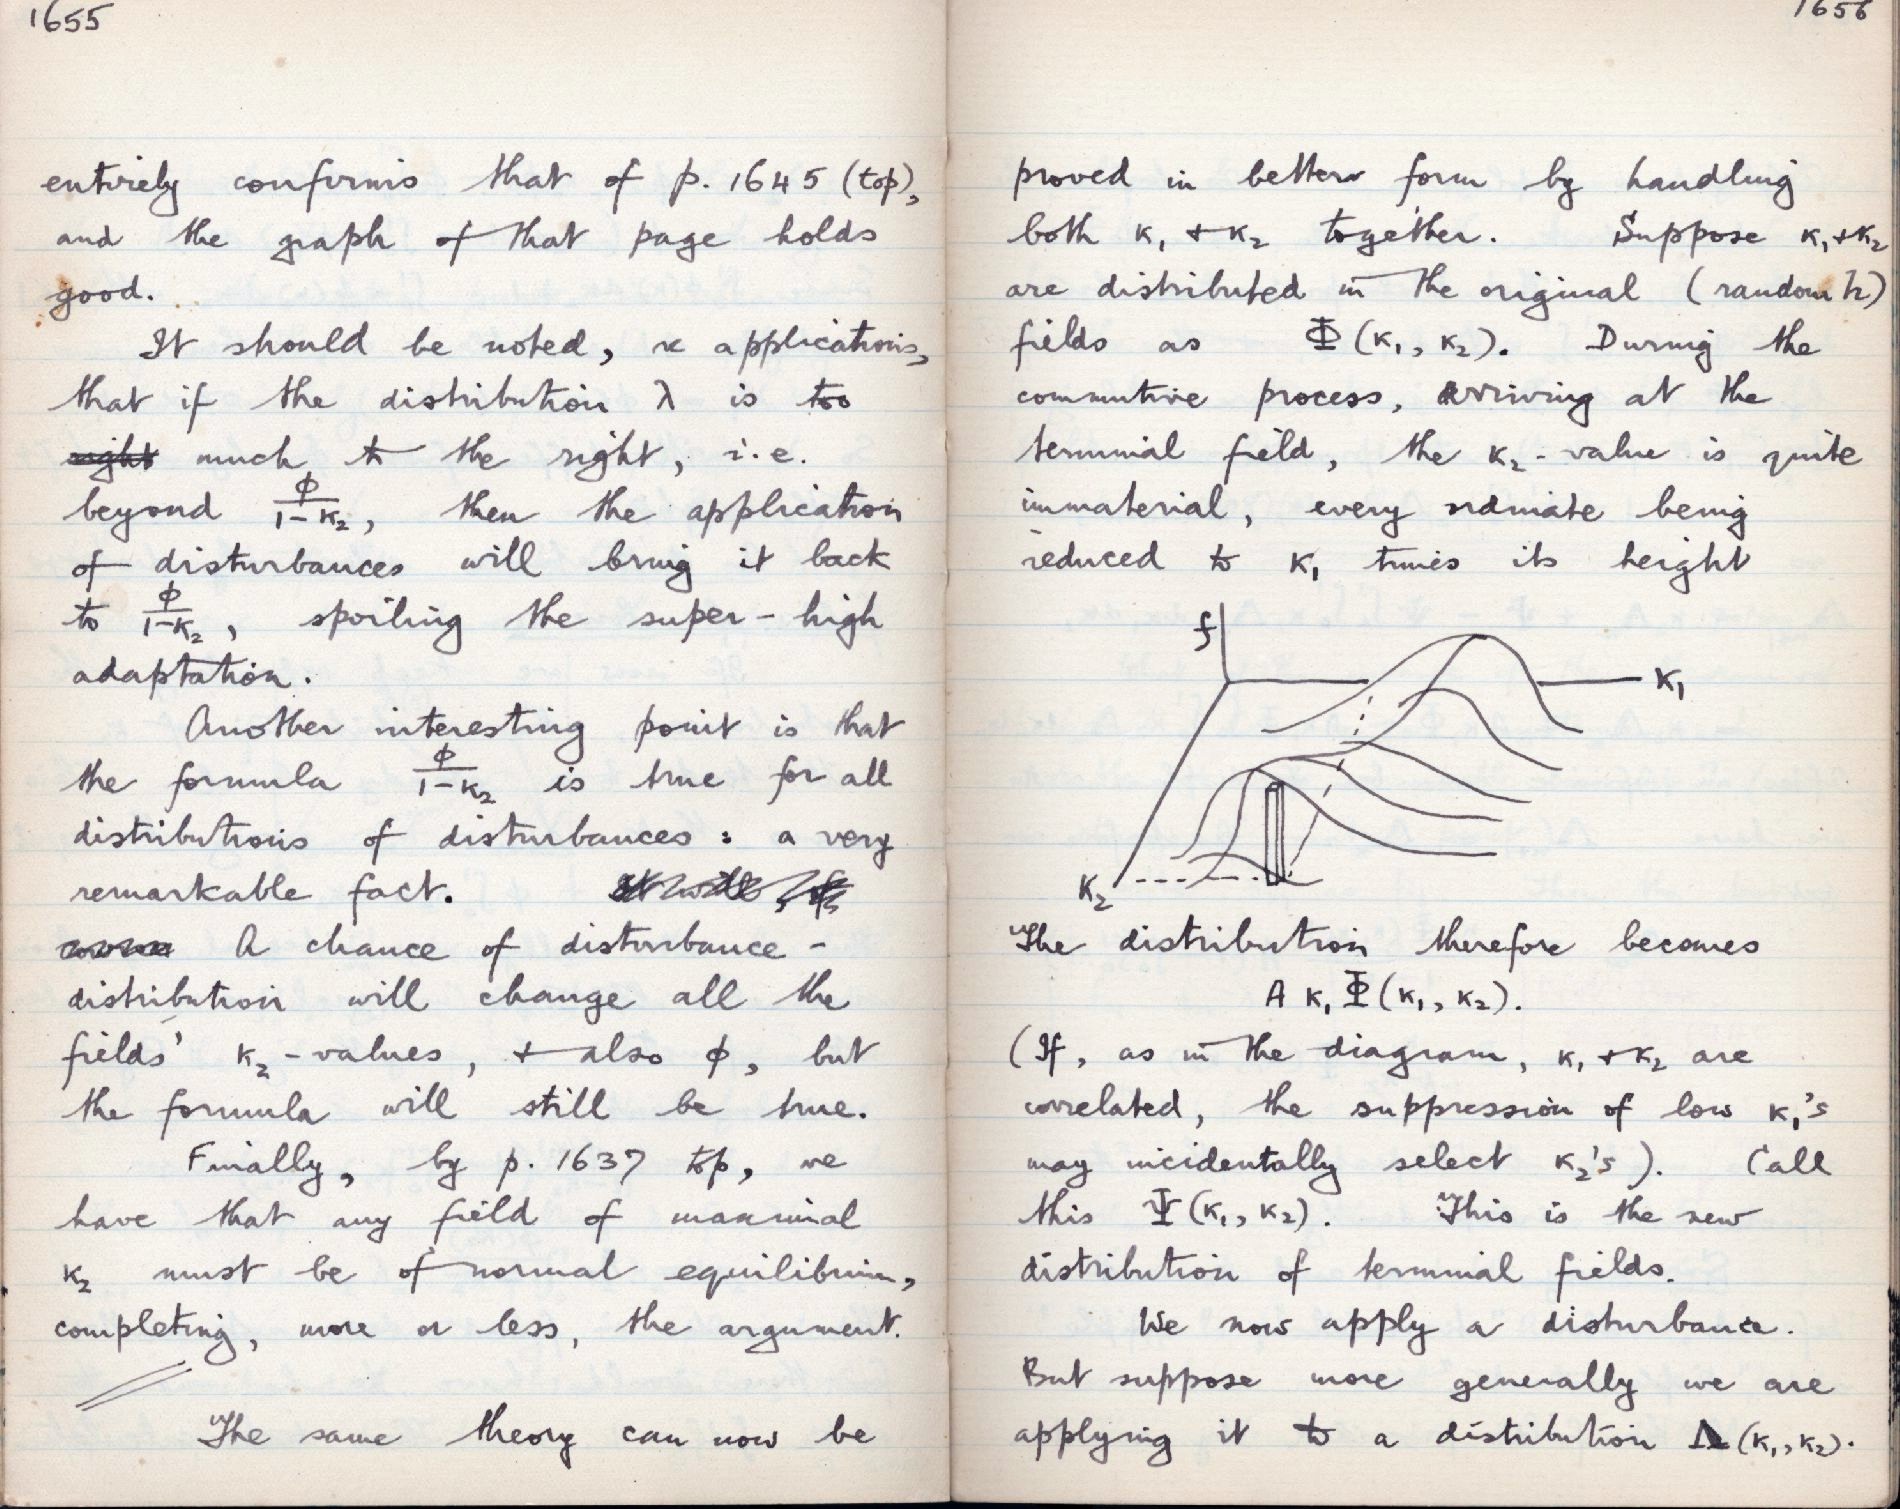 1655
entirely confirms that of p. 1645 (top),
and the graph of that page holds
good.
It should be noted, in applications,
that if the distribution λ is too
right much to the right, i.e.
beyond ϕ/(1-κ₂), then the application
of disturbances will bring it back
to ϕ/(1-κ₂), spoiling the super-high
adaptation.
Another interesting point is that
the formula ϕ/(1-κ₂) is true for all
distributions of disturbances: a very
remarkable fact.
A chance of disturbance-
distribution will change all the
fields' κ₂-values, + also ϕ, but
the formula will still be true.
Finally, by p. 1637 top, we
have that any field of maximal
κ₂ must be of normal equilibrium,
completing, more or less, the argument.
The same theory can now be
1656
proved in better form by handling
both κ₁ + κ₂ together. Suppose κ₁ + κ₂
are distributed in the original (random h)
fields as Φ(κ₁, κ₂). During the
commutive process, arriving at the
terminal field, the κ₂-value is quite
immaterial, every ordinate being
reduced to κ₁ times its height
f
κ₁
κ₂
The distribution therefore becomes
A κ₁ Φ(κ₁, κ₂).
(If, as in the diagram, κ₁ + κ₂ are
correlated, the suppression of low κ₁'s
may incidentally select κ₂'s). Call
this Ψ(κ₁, κ₂). This is the new
distribution of terminal fields.
We now apply a disturbance.
But suppose more generally we are
applying it to a distribution Λ(κ₁, κ₂).